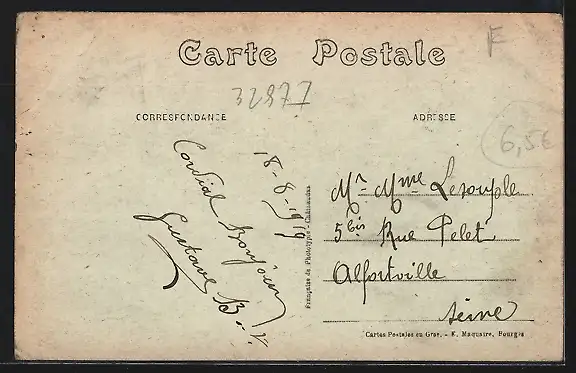 Carte Postale
F
32877
CORRESPONDANCE
ADRESSE
6,5€
18-8-1919
Cordial Bonjour
Gustave B. V.
Française de Phototypie - Châteaudun
Mr Mme Lesouple
5bis Rue Pelet
Alfortville
Seine
Cartes Postales en Gros. - E. Maquaire, Bourges